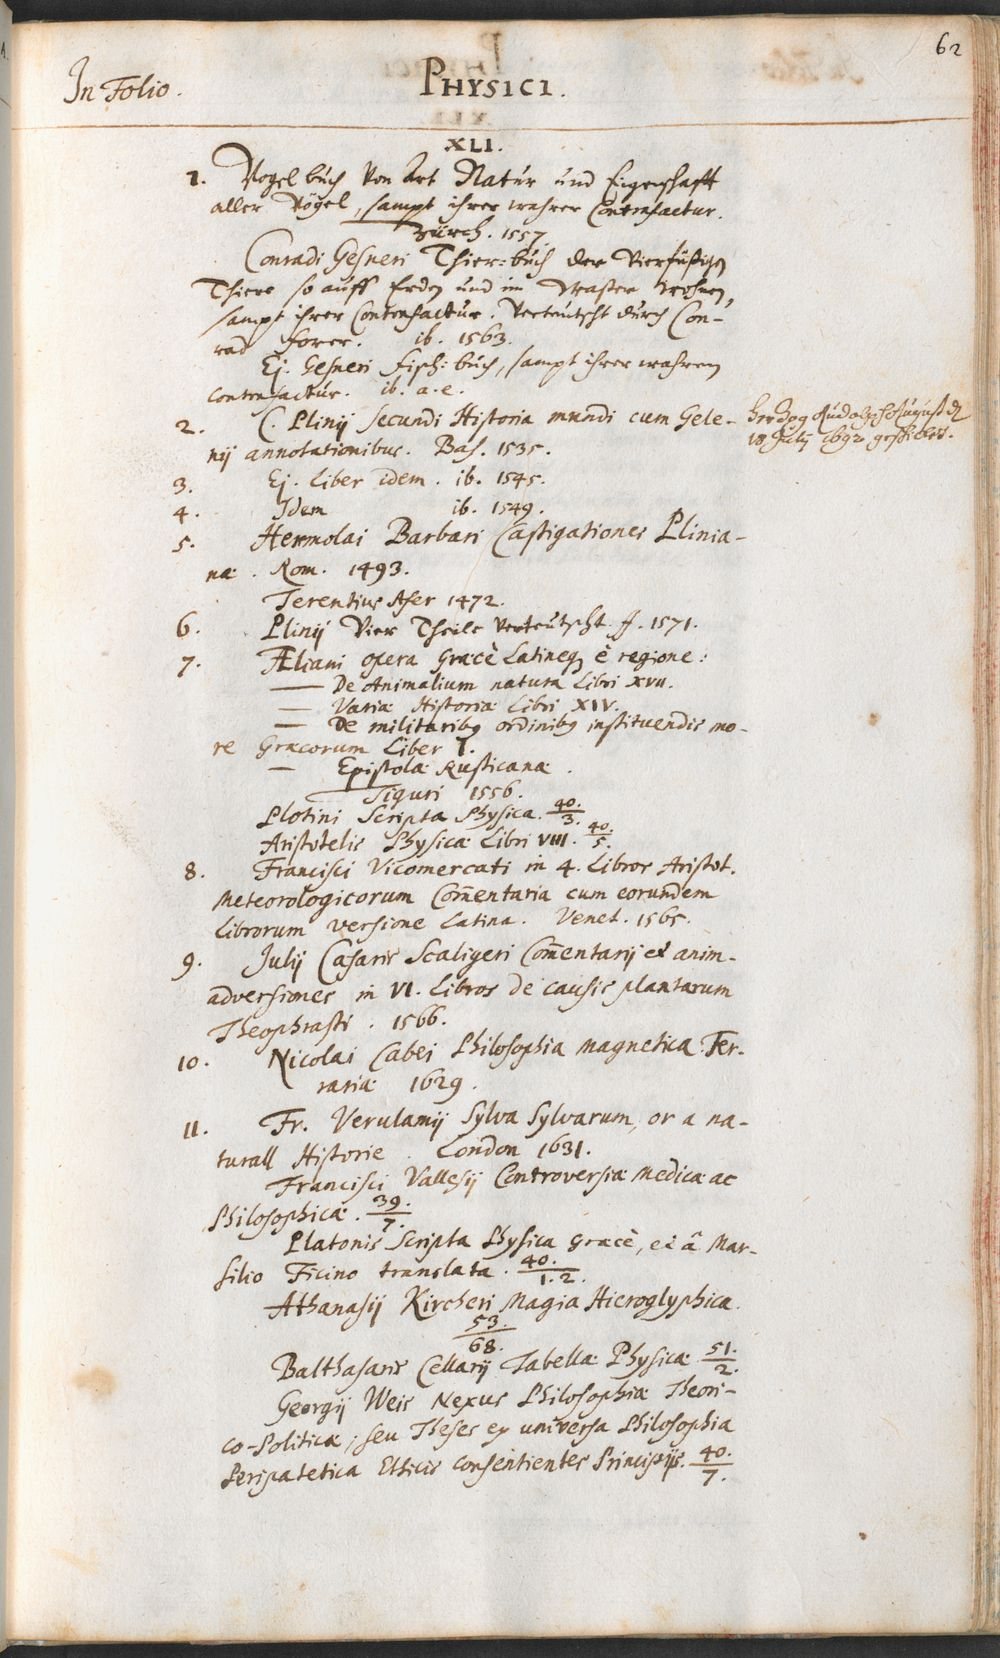 62
In Folio.
PHYSICI.
XLI.
1. Vogelbuch Von Art Natur und Eigenschafft
aller Vögel, sampt ihrer wahrer Contrafactur.
Zürch. 1557.
Conradi Gesneri Thier-buch der Vierfüßigen
Thiere so auff Erden und im Wasser wohnen,
sampt ihrer Contrafactur. Verteutscht durch Con-
rad Forer. ib. 1563.
Ej. Gesneri Fisch-buch, sampt ihrer wahren
Contrafactur. ib. a. e.
2. C. Plinij Secundi Historia mundi cum Gele-
nij annotationibus. Bas. 1535.
Herzog Rudolph August
18 July 1692
3. Ej. Liber idem. ib. 1545.
4. Idem ib. 1549.
5. Hermolai Barbari Castigationes Plinia-
næ. Rom. 1493.
Terentius Afer 1472.
6. Plinij Vier Theile Verteutscht. f. 1571.
7. Æliani opera Græcè Latineq; è regione:
— De Animalium natura Libri XVII.
— Variæ Historiæ Libri XIV.
— De militarib9 ordinib9 instituendis mo-
re Græcorum Liber I.
— Epistolæ Rusticanæ.
Tiguri 1556.
Plotini Scripta Physica. 40./3.
Aristotelis Physicæ Libri VIII. 40./5.
8. Francisci Vicomercati in 4. Libros Aristot.
Meteorologicorum Com̄entaria cum eorundem
Librorum versione Latina. Venet. 1565.
9. Julij Cæsaris Scaligeri Com̄entarij et anim-
adversiones in VI. Libros de causis plantarum
Theophrasti. 1566.
10. Nicolai Cabei Philosophia magnetica. Fer-
rariæ 1629.
11. Fr. Verulamij Sylva Sylvarum, or a na-
turall Historie. London 1631.
Francisci Vallesij Controversiæ Medicæ ac
Philosophicæ. 39./7.
Platonis Scripta Physica græcè, et â Mar-
silio Ficino translata. 40./1.2.
Athanasij Kircheri Magia Hieroglyphica.
53./68.
Balthasaris Cellarij Tabellæ Physicæ 51./2.
Georgij Weis Nexus Philosophiæ Theori-
co-Politicæ, seu Theses ex universa Philosophia
Peripatetica Ethicis consentientes Principijs. 40./7.